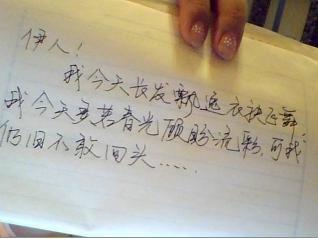 伊人！
我今天长发飘逸衣袂飞舞，
我今天委若春光顾盼流彩，可我
仍旧不敢回头……